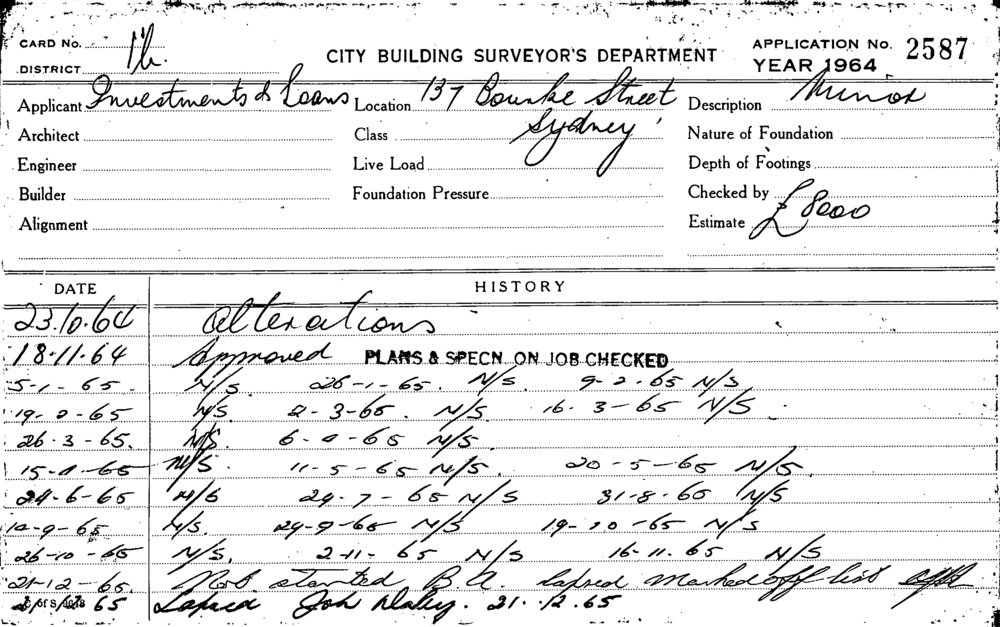 CARD No. 1b. CITY BUILDING SURVEYOR'S DEPARTMENT APPLICATION No. 2587
DISTRICT YEAR 1964
Applicant Investments & Loans Location 137 Bourke Street Description Minor
Architect Class Sydney Nature of Foundation
Engineer Live Load Depth of Footings
Builder Foundation Pressure Checked by
Alignment Estimate £8000
DATE HISTORY
23.10.64 Alterations
18.11.64 Approved PLANS & SPECN ON JOB CHECKED
5-1-65. N/S. 26-1-65. N/S. 9-2-65 N/S
19-2-65 N/S. 2-3-65. N/S. 16.3-65 N/S.
26.3-65. N/S. 6-4-65 N/S.
15-4-65 N/S. 11-5-65 N/S. 20-5-65 N/S.
24-6-65 N/S 29-7-65 N/S 31-8-65 N/S
-9-65 N/S. 29-9-65 N/S 19-10-65 N/S
26-10-65 N/S. 2-11-65 N/S 16-11.65 N/S
21-12-65. Not started B.A. lapsed marked off list
21/12/65 Lapsed John Daley. 21.12.65